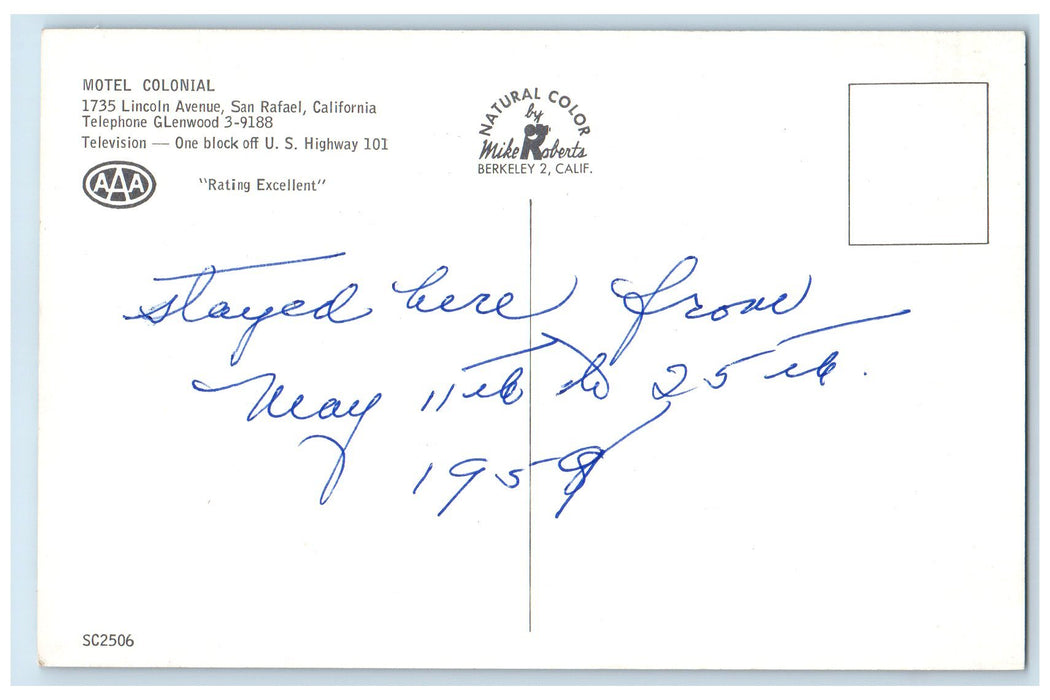 MOTEL COLONIAL
1735 Lincoln Avenue, San Rafael, California
Telephone GLenwood 3-9188
Television — One block off U. S. Highway 101
AAA
"Rating Excellent"
NATURAL COLOR
by
Mike Roberts
BERKELEY 2, CALIF.
stayed here from
May 11th to 25th.
1959
SC2506